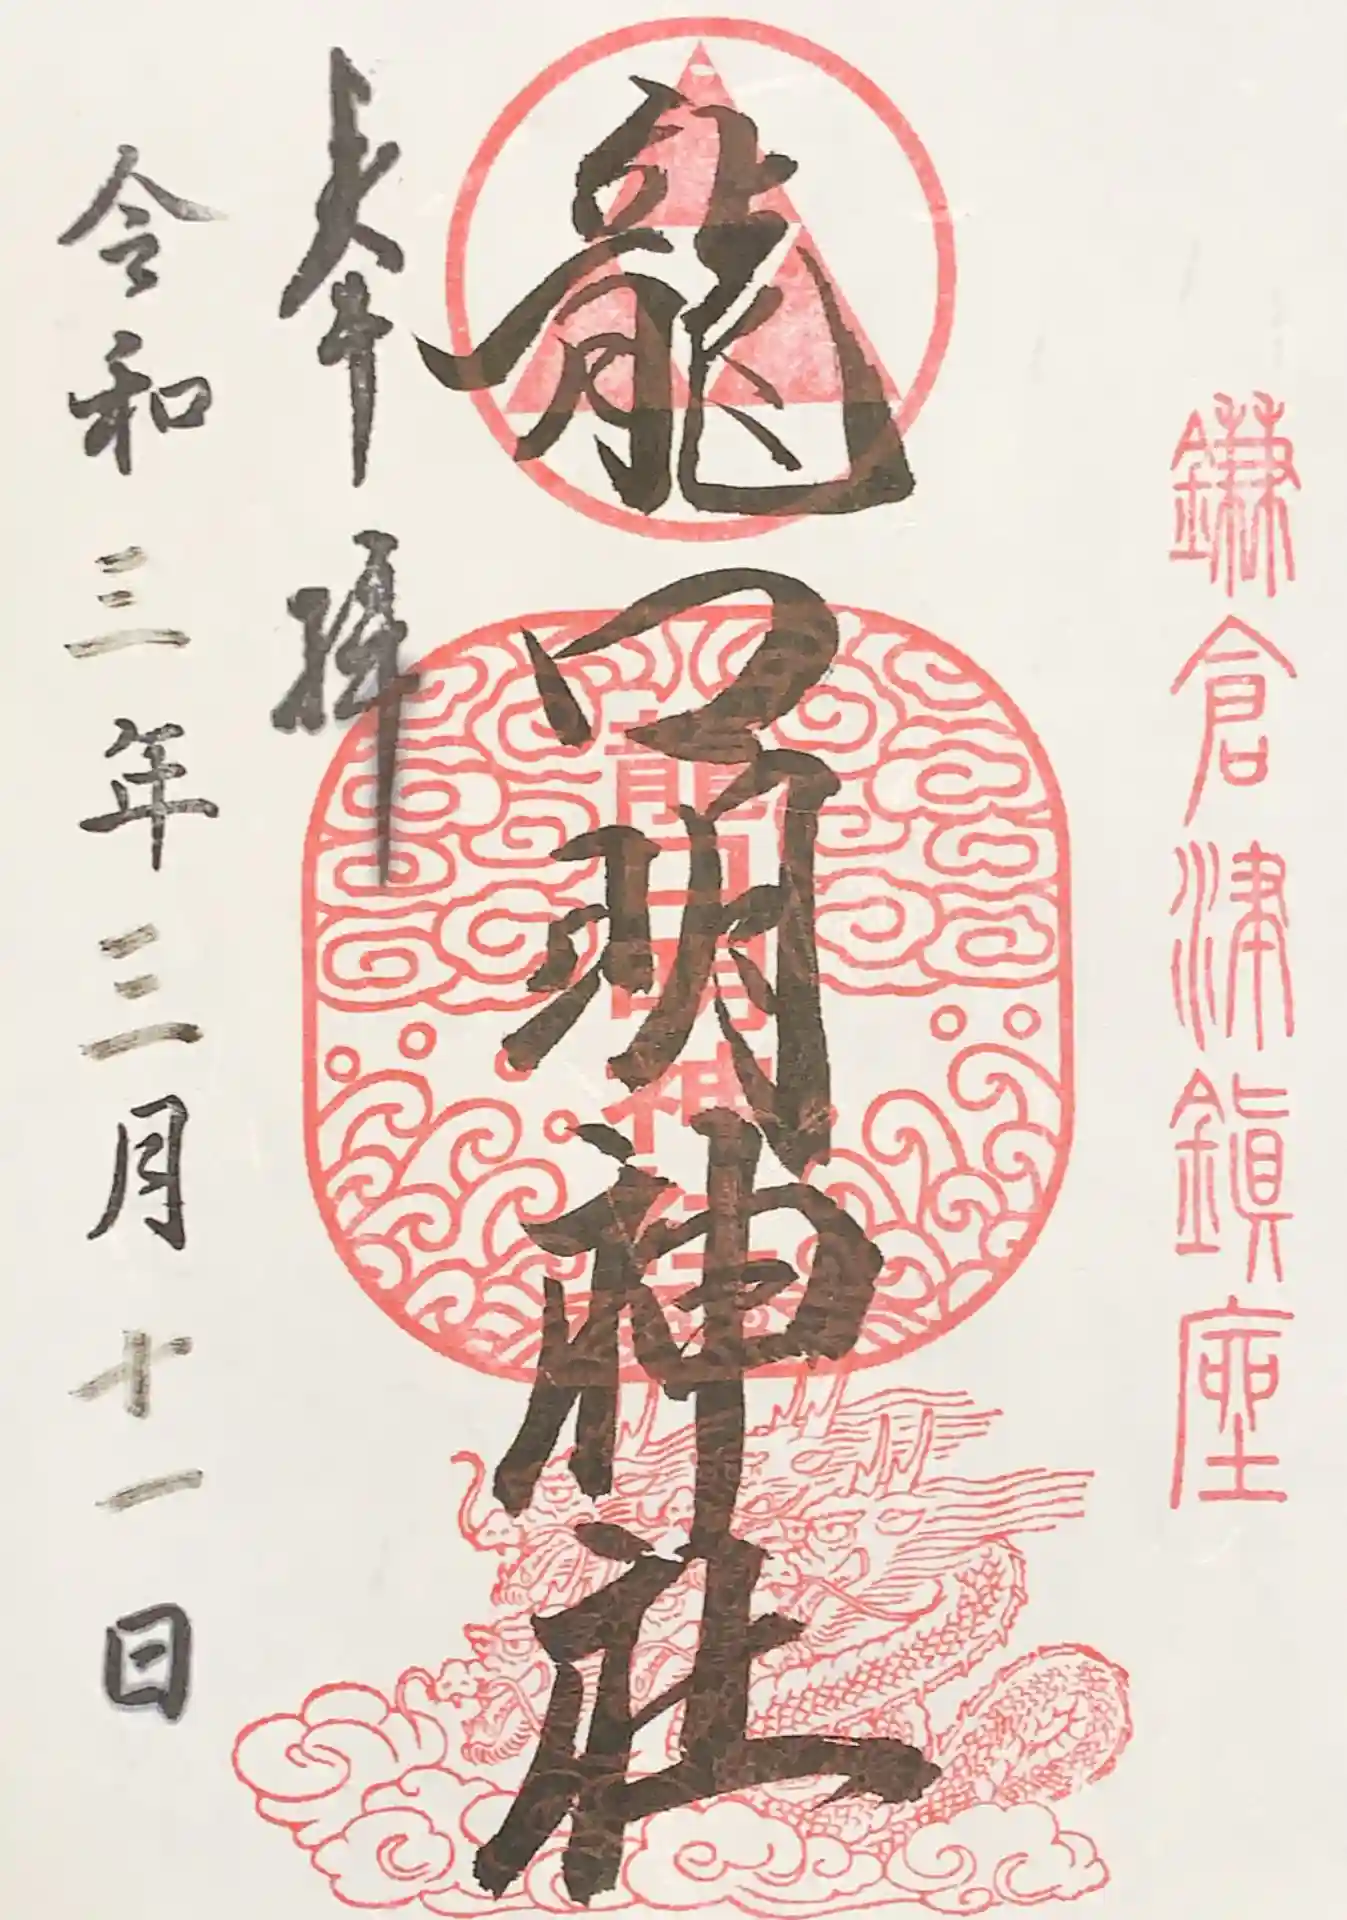 鎌倉津鎮座
龍口明神社
龍口明神社
奉拝
令和三年三月十一日